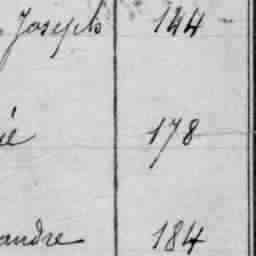 Joseph 144
ié 178
andre 184